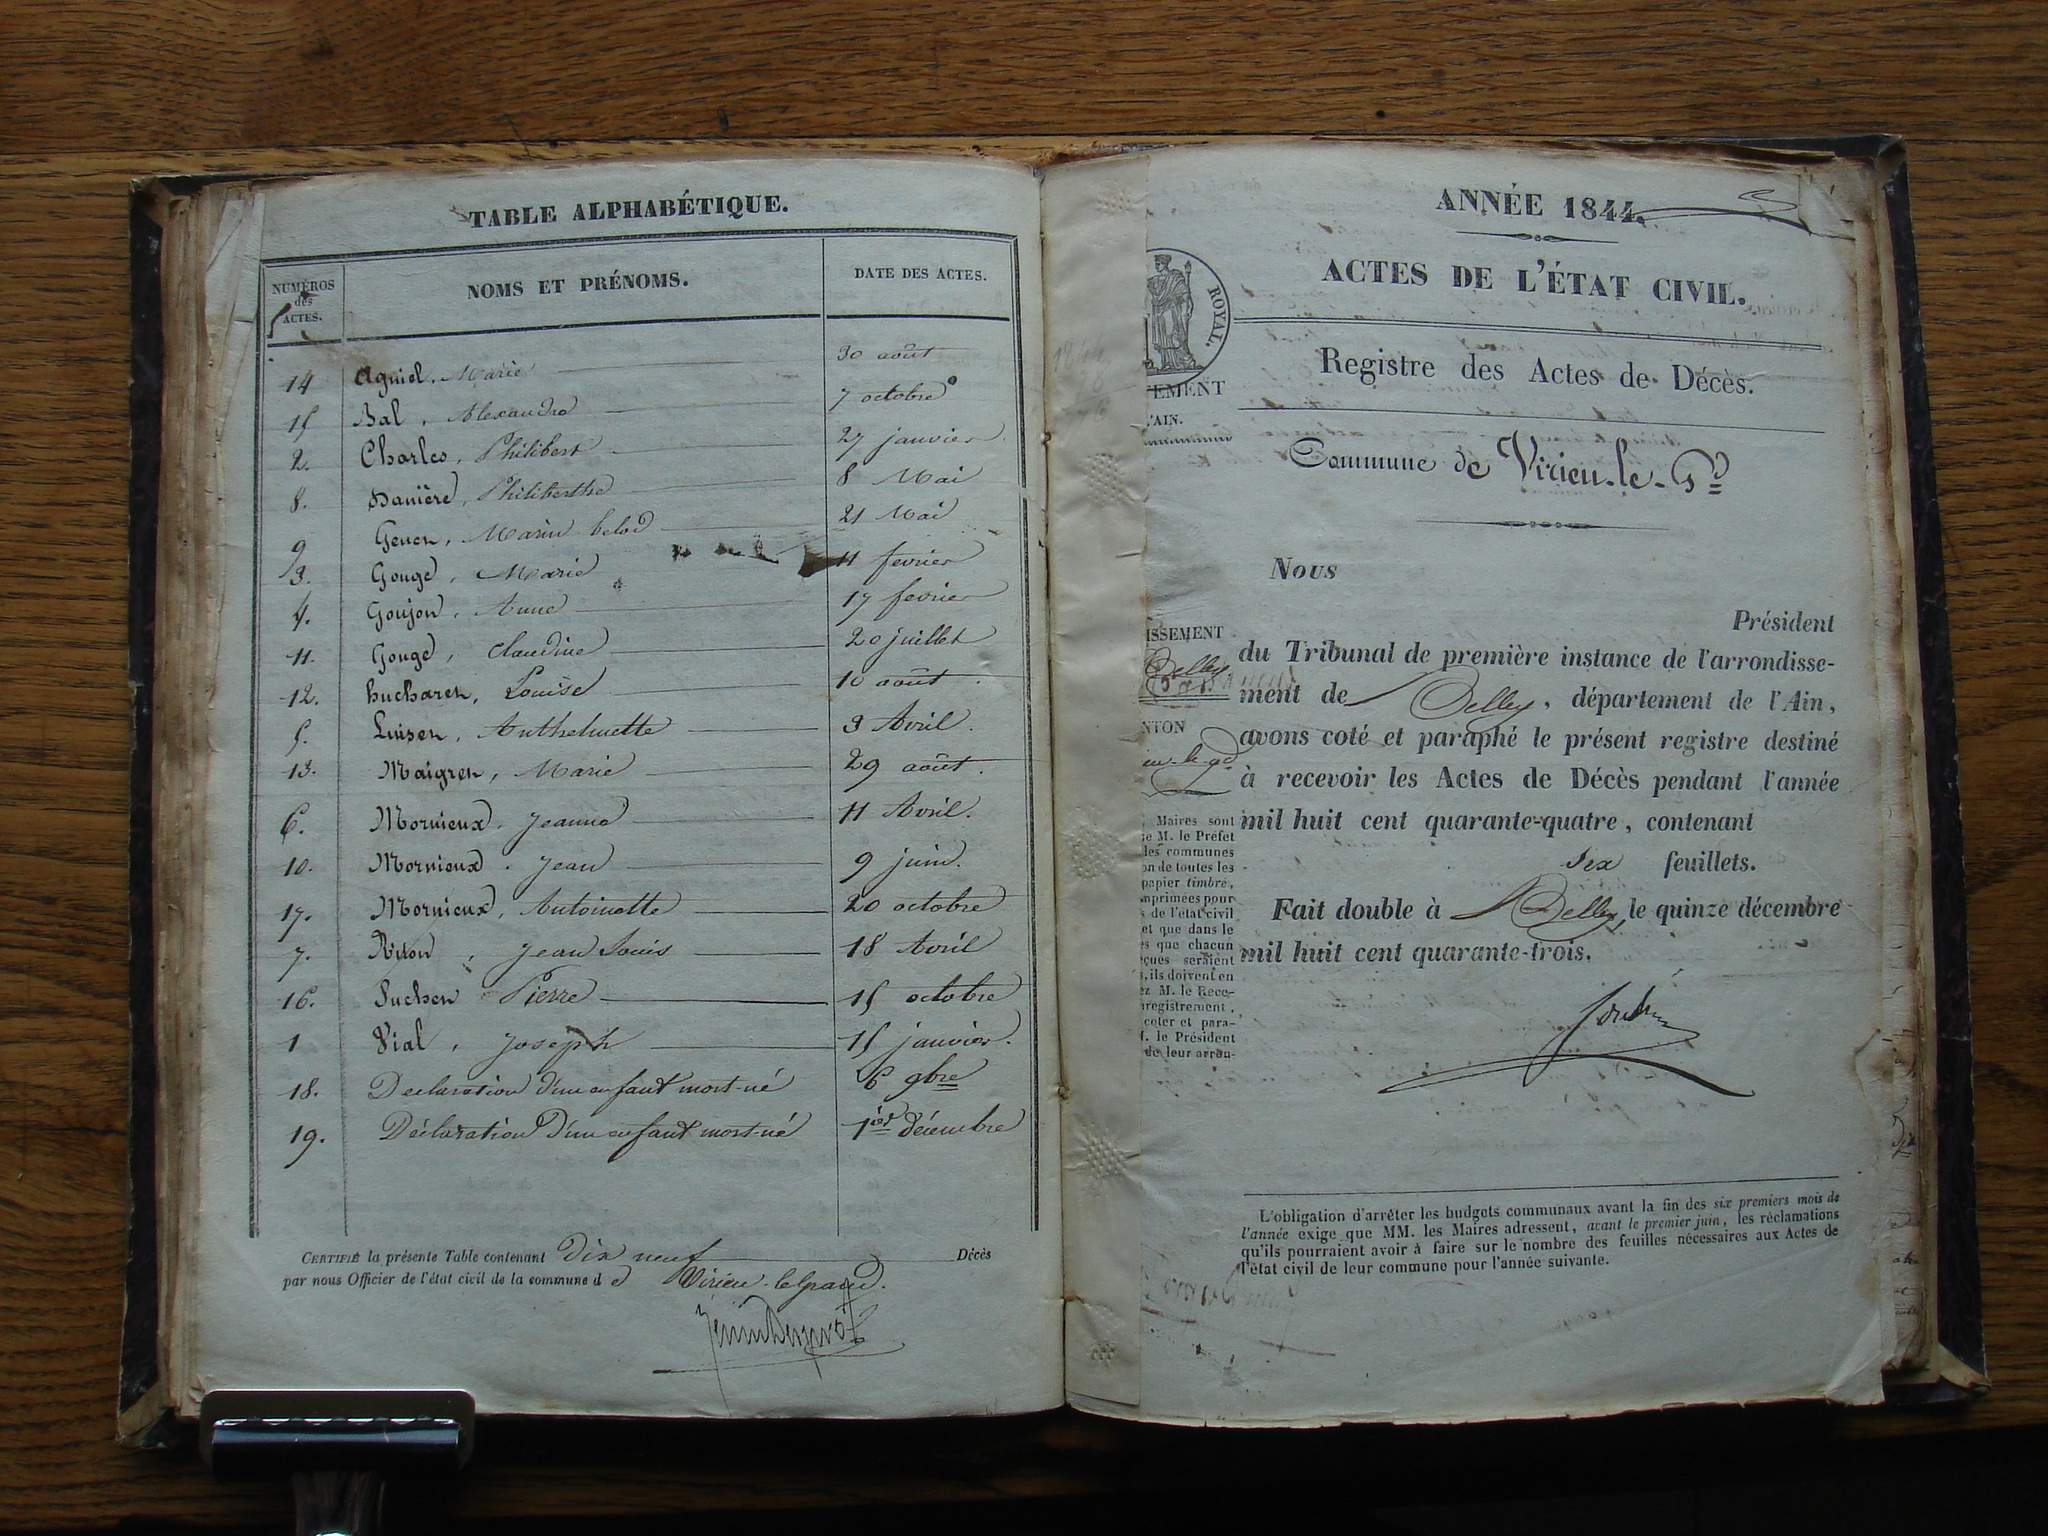 TABLE ALPHABÉTIQUE.
NUMÉROS des ACTES. NOMS ET PRÉNOMS. DATE DES ACTES.
14 Agniel, Marie 30 août
15 Bal, Alexandre 7 octobre
2. Charles, Philibert 27 janvier
8. Danière, Philiberthe 8 Mai
9 Marin 21 Mai
3. Gouge, Marie 11 fevrier
4. Goujon, Anne 17 fevrier
11. Gouge, Claudine 20 juillet
12. Louise 10 août.
5. Anthelmette 3 Avril.
13. Maigren, Marie 29 août.
6. Mornieux, Jeanne 11 Avril.
10. Mornieux. Jean 9 juin.
17. Mornieux, Antoinette 20 octobre
7. Jean Louis 18 Avril
16. Pierre 15 octobre
1 Vial, Joseph 15 janvier.
18. Declaration d'un enfant mort-né 6 9bre
19. Déclaration d'un enfant mort-né 1er décembre
CERTIFIÉ la présente Table contenant Dix neuf Décès
par nous Officier de l'état civil de la commune de Virieu-legrand.
ANNÉE 1844.
ACTES DE L'ÉTAT CIVIL.
ROYAL.
Registre des Actes de Décès.
TEMENT
L'AIN.
Commune de Virieu-le-Gd
Nous
Président
du Tribunal de première instance de l'arrondisse-
ment de Belley, département de l'Ain,
avons coté et paraphé le présent registre destiné
à recevoir les Actes de Décès pendant l'année
mil huit cent quarante-quatre, contenant
Six feuillets.
Fait double à Belley, le quinze décembre
mil huit cent quarante-trois.
ISSEMENT
Belley
NTON
Maires sont
e M. le Préfet
les communes
on de toutes les
papier timbré,
mprimées pour
s de l'état civil
et que dans le
es que chacun
eçues seraient
, ils doivent en
ez M. le Rece-
nregistrement,
coter et para-
M. le Président
de leur arron-
L'obligation d'arrêter les budgets communaux avant la fin des six premiers mois de
l'année exige que MM. les Maires adressent, avant le premier juin, les réclamations
qu'ils pourraient avoir à faire sur le nombre des feuilles nécessaires aux Actes de
l'état civil de leur commune pour l'année suivante.